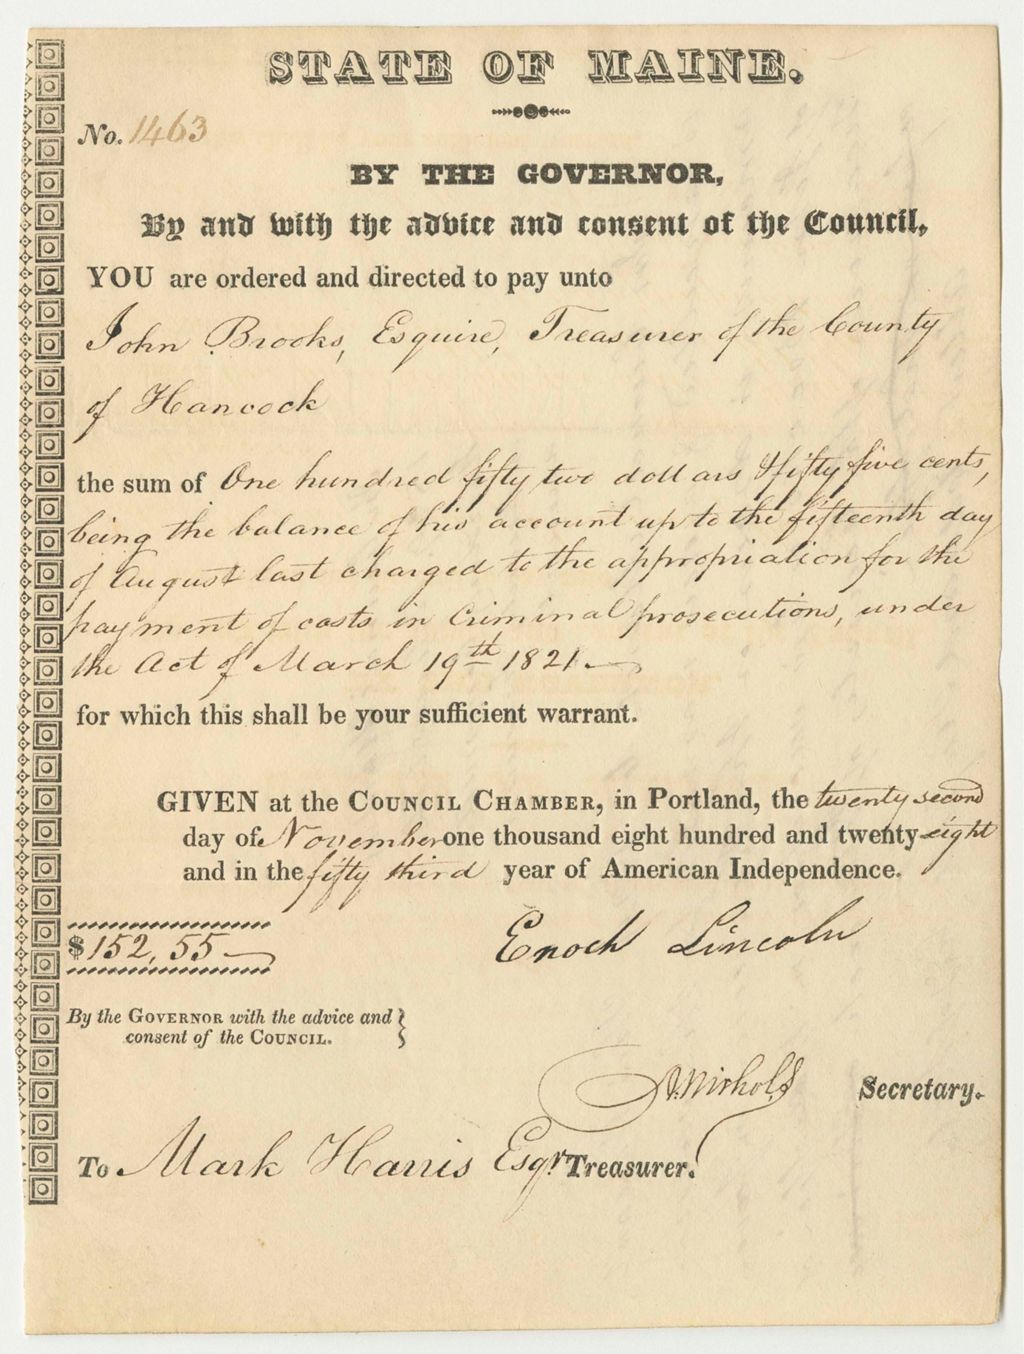 STATE OF MAINE.
No. 1463
BY THE GOVERNOR,
By and with the advice and consent of the Council,
YOU are ordered and directed to pay unto
John Brooks, Esquire, Treasurer of the County
of Hancock
the sum of One hundred fifty two dollars & fifty five cents,
being the balance of his account up to the fifteenth day
of August last charged to the appropriation for the
payment of costs in Criminal prosecutions, under
the Act of March 19th 1821.
for which this shall be your sufficient warrant.
GIVEN at the COUNCIL CHAMBER, in Portland, the twenty second
day of November one thousand eight hundred and twenty-eight
and in the fifty third year of American Independence.
$152,55
Enoch Lincoln
By the GOVERNOR with the advice and
consent of the COUNCIL.
A. Nichols Secretary.
To Mark Harris Esqr Treasurer.